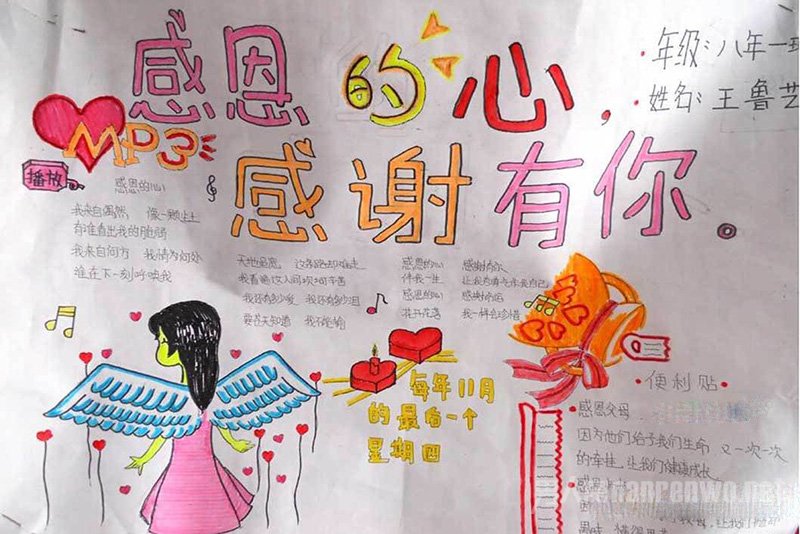 感恩的心，
感谢有你。
年级：八年一班
姓名：王鲁艺
MP3
播放
感恩的心
我来自偶然 像一颗尘土
有谁看出我的脆弱
我来自何方 我情归何处
谁在下一刻呼唤我
天地虽宽 这条路却难走
我看遍这人间坎坷辛苦
我还有多少爱 我还有多少泪
要苍天知道 我不认输
感恩的心 感谢有你
伴我一生 让我有勇气做我自己
感恩的心 感谢命运
花开花落 我一样会珍惜
每年11月
的最后一个
星期四
·便利贴·
感恩父母
因为他们给予我们生命，又一次一次
的牵挂，让我们健康成长
nanrenwo.net